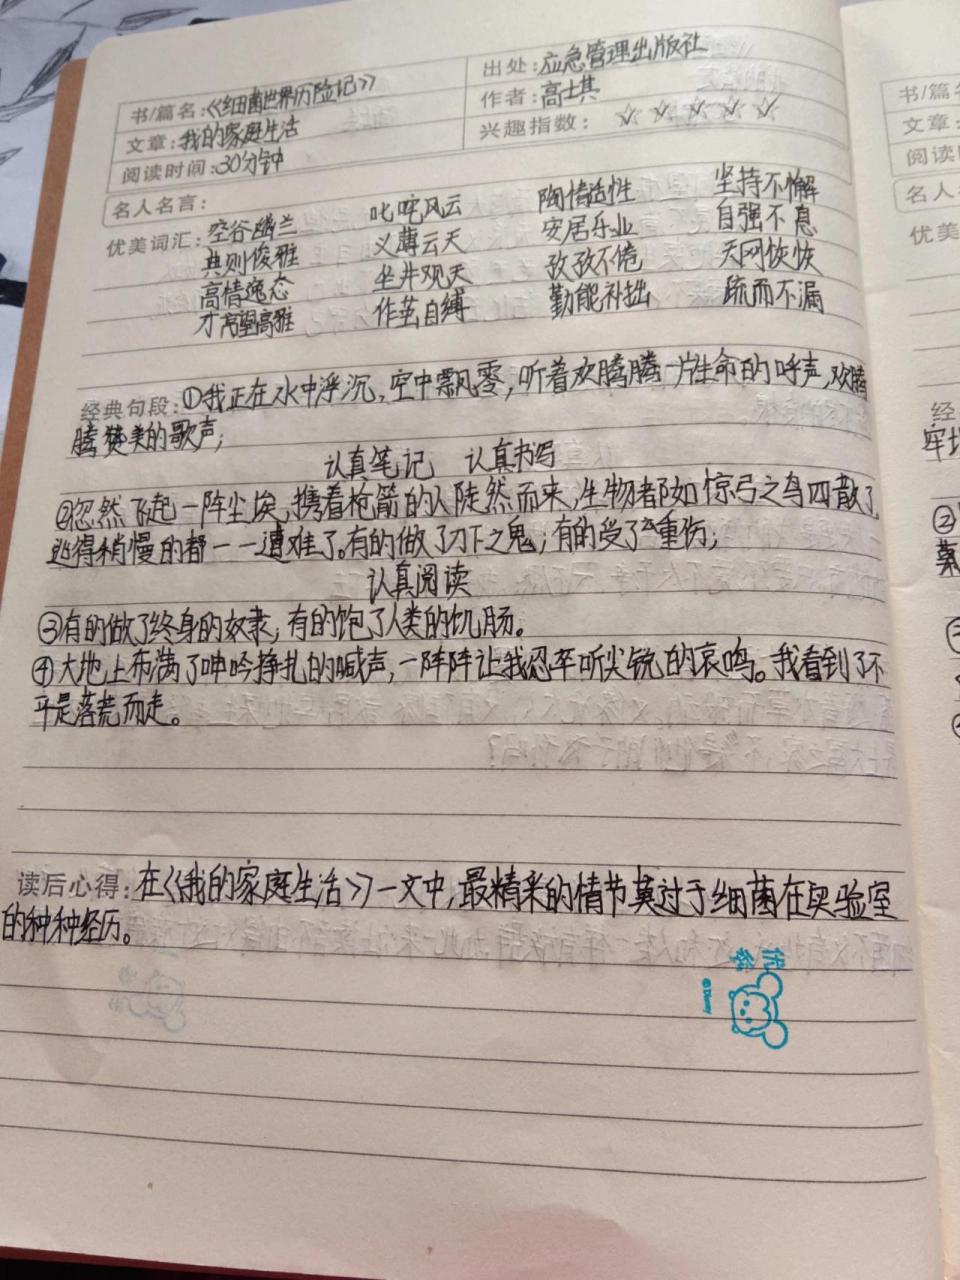 书/篇名:《细菌世界历险记》
出处:应急管理出版社
文章:我的家庭生活
作者:高士其
阅读时间:30分钟
兴趣指数:☆☆☆☆☆
名人名言:
优美词汇:空谷幽兰 叱咤风云 陶情适性 坚持不懈
典则俊雅 义薄云天 安居乐业 自强不息
高情逸态 坐井观天 孜孜不倦 天网恢恢
才高望高雅 作茧自缚 勤能补拙 疏而不漏
经典句段:①我正在水中浮沉,空中飘零,听着欢腾腾一片生命的呼声,欢腾
腾赞美的歌声;
认真笔记 认真书写
②忽然飞起一阵尘埃,携着枪箭的人陡然而来,生物都如惊弓之鸟四散了,
逃得稍慢的都一一遭难了。有的做了刀下之鬼;有的受了重伤;
认真阅读
③有的做了终身的奴隶;有的饱了人类的饥肠。
④大地上布满了呻吟挣扎的喊声,一阵阵让我忍卒听尖锐的哀鸣。我看到了不
平是落荒而走。
读后心得:在《我的家庭生活》一文中,最精彩的情节莫过于细菌在实验室
的种种经历。
©Disney
书/篇名
文章:
阅读
名人名
优美
经
牢
②
③